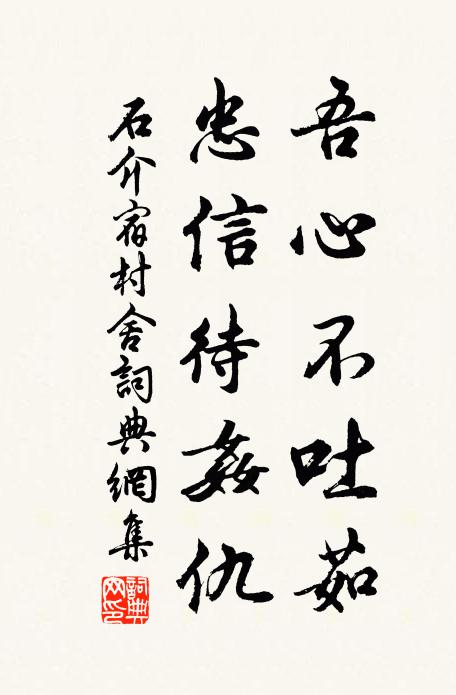 吾心不吐茹
忠信待姦仇
石介宿村舍詞典網集
詞典网印